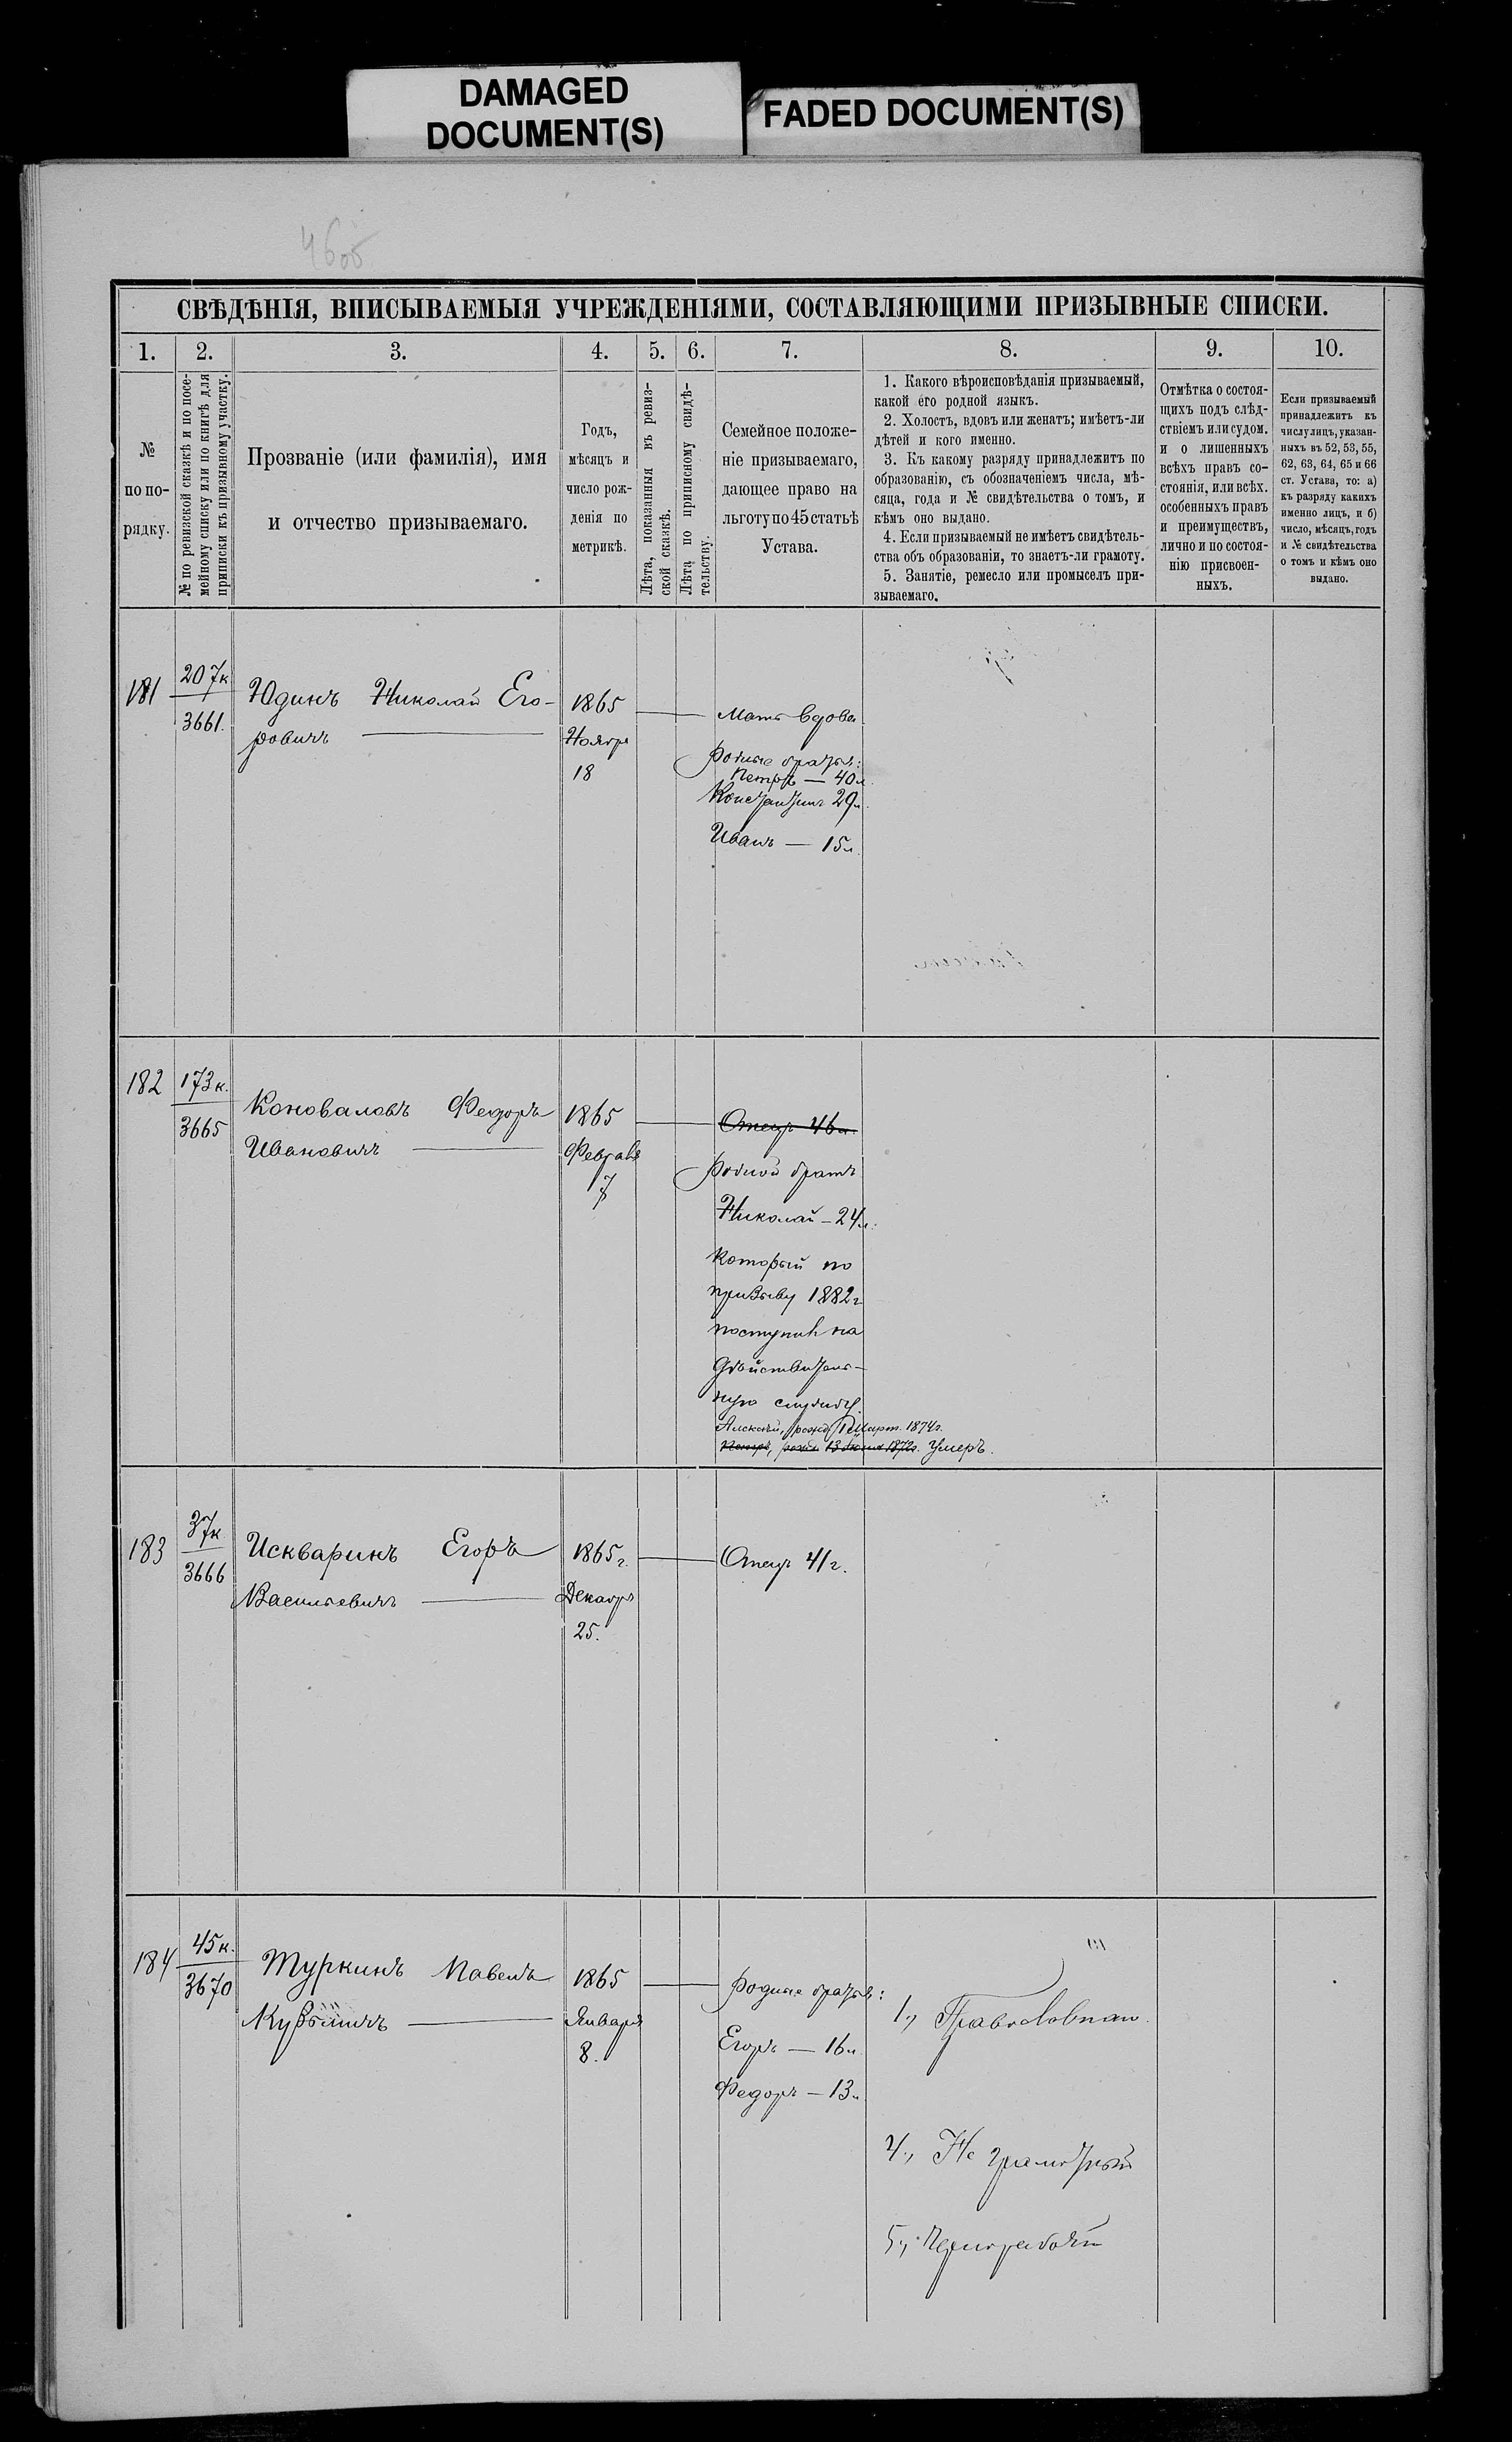 DAMAGED
DOCUMENT(S)
FADED DOCUMENT(S)
46об
СВѢДѢНІЯ, ВПИСЫВАЕМЫЯ УЧРЕЖДЕНІЯМИ, СОСТАВЛЯЮЩИМИ ПРИЗЫВНЫЕ СПИСКИ.
1.
2.
3.
4.
5.
6.
7.
8.
9.
10.
№
по по-
рядку.
№ по ревизской сказкѣ и по посе-
мейному списку или по книгѣ для
приписки къ призывному участку.
Прозваніе (или фамилія), имя
и отчество призываемаго.
Годъ,
мѣсяцъ и
число рож-
денія по
метрикѣ.
Лѣта, показанныя въ ревиз-
ской сказкѣ.
Лѣта по приписному свидѣ-
тельству.
Семейное положе-
ніе призываемаго,
дающее право на
льготу по 45 статьѣ
Устава.
1. Какого вѣроисповѣданія призываемый,
какой его родной языкъ.
2. Холостъ, вдовъ или женатъ; имѣетъ-ли
дѣтей и кого именно.
3. Къ какому разряду принадлежитъ по
образованію, съ обозначеніемъ числа, мѣ-
сяца, года и № свидѣтельства о томъ, и
кѣмъ оно выдано.
4. Если призываемый не имѣетъ свидѣтель-
ства объ образованіи, то знаетъ-ли грамоту.
5. Занятіе, ремесло или промыселъ при-
зываемаго.
Отмѣтка о состоя-
щихъ подъ слѣд-
ствіемъ или судом.
и о лишенныхъ
всѣхъ правъ со-
стоянія, или всѣх.
особенныхъ правъ
и преимуществъ,
лично и по состоя-
нію присвоен-
ныхъ.
Если призываемый
принадлежитъ къ
числу лицъ, указан-
ныхъ въ 52, 53, 55,
62, 63, 64, 65 и 66
ст. Устава, то: а)
къ разряду какихъ
именно лицъ, и б)
число, мѣсяцъ, годъ
и № свидѣтельства
о томъ и кѣмъ оно
выдано.
181
207к
3661.
Юдинъ Николай Его-
ровичъ
1865
Ноябр
18
Мать вдова
Родные братья:
Петръ — 40л.
Константинъ 29л.
Иванъ — 15л.
182
173к.
3665
Коноваловъ Федоръ
Ивановичъ
1865
Феврал
7
Отецъ 46л.
Родной братъ
Николай — 24л.
который по
призыву 1882г.
поступилъ на
дѣйствитель-
ную службу.
Алексѣй, рожд. Март. 1874г.
Петръ, рожд. 13 1872г. Умеръ.
183
37к
3666
Искваринъ Егоръ
Васильевичъ
1865г.
Декабр
25.
Отецъ 41г.
184
45к.
3670
Туркинъ Павелъ
Кузьмичъ
1865
Января
8.
Родные братья:
Егоръ — 16л.
Федоръ — 13л.
1., Православнаго.
4., Не грамотный
5., Чернорабочій